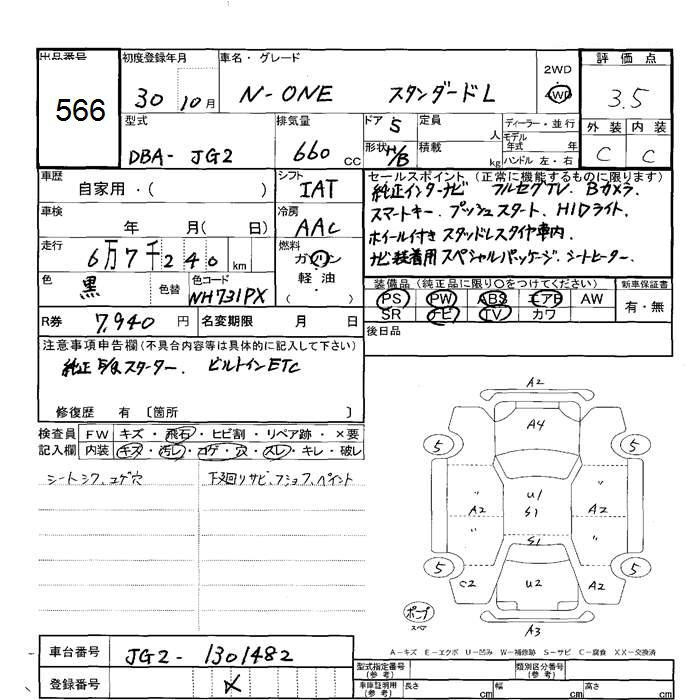 出品番号 初度登録年月 車名・グレード 2WD 評価点
566 30 10月 N-ONE スタンダードL 4WD 3.5
型式 排気量 ドア 5 定員 人 ディーラー・並行 外装 内装
DBA- JG2 660 CC 形状 H/B 積載 kg モデル年式 年 ハンドル 左・右 C C
車歴 シフト セールスポイント (正常に機能するものに限ります)
自家用・( ) IAT 純正インターナビ フルセグTV. Bカメラ.
車検 冷房 スマートキー. プッシュスタート. HIDライト.
年 月( 日) AAC ホイール付きスタッドレスタイヤ車内.
走行 燃料 ナビ装着用スペシャルパッケージ. シートヒーター.
6万7千240km ガソリン
色 色替 色コード ( 軽・油 ) 装備品 (純正品に限り○をつけてください) 新車保証書
黒 NH731PX PS PW ABS エアB AW 有・無
R券 7,940 円 名変期限 月 日 SR ナビ TV カワ
後日品
注意事項申告欄(不具合内容等は具体的に記入して下さい)
純正 E/gスターター. ビルトインETC
修復歴 有 〔箇所 〕
検査員 FW キズ・飛石・ヒビ割・リペア跡・×要
記入欄 内装 キズ・汚レ・コゲ・穴・スレ・キレ・破レ
シートシワ.コゲ穴 下廻りサビ.
A2
A4
5 5
" U1 "
A2 S1 A2
S1
5 5
C2 U2 A2
ポンプ
スペア
A3
A-キズ E-エクボ U-凹み W-補修跡 S-サビ C-腐食 XX-交換済
車台番号 JG2-1301482
型式指定番号(参考) 類別区分番号(参考)
登録番号
車庫証明用(参考) 長さ cm 幅 cm 高さ cm